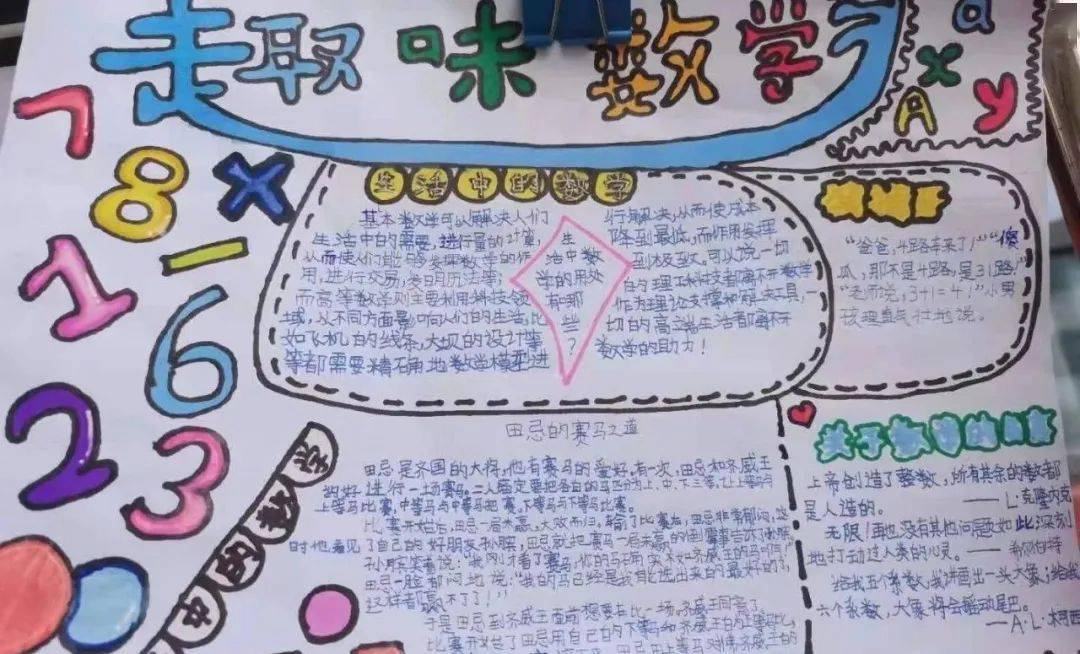 走趣味数学
a
x
A
y
7
8
×
1
6
2
3
生活中的数学
基本数学可以解决人们
生活中的需要,进行量的计算,
从而使人们能够发挥数学的作
用,进行交易,发明历法等,
而高等数学则主要利用科技领
域,从不同方面影响人们的生活,比
如飞机的线条,大坝的设计等
等都需要精确地数学模型进
行解决,从而使成本
降到最低,而作用发挥
到极致,可以说一切
的理工科技都离不开数学
作为理论支撑和解决工具,
切的高端生活都离不开
数学的助力!
生
活中数
学的用处
有哪
些
?
“爸爸,4路车来了!”“傻
瓜,那不是4路,是31路!”
“老师说,3+1=4!”小男
孩理直气壮地说。
田忌的赛马之道
田忌是齐国的大将,他有赛马的爱好。有一次,田忌和齐威王
约好进行一场赛马。二人商定要把各自的马匹分为上、中、下三等,让上等马与
上等马比赛,中等马与中等马比赛,下等马与下等马比赛。
比赛开始后,田忌一局未赢,大败而归。输了比赛后,田忌非常郁闷,这
时他看见了自己的好朋友孙膑,田忌就把赛马一局未赢的
孙膑笑着说:“我刚才看了赛马,你的马
田忌一脸郁闷地说:“我的马已经是我能选出来的最好的了,
这样都赢不了了!”
于是田忌到齐威王面前想要再比一场,齐威王同意了。
比赛开始了田忌用自己的下等马和齐威王的上等马比,
中的数学
关于数学的名言
上帝创造了整数,所有其余的数都
是人造的。
——L·克隆内克
无限!再也没有其他问题如此深刻
地打动过人类的心灵。——希尔伯特
给我五个系数,我讲画出一头大象;给我
六个系数,大象将会摇动尾巴。
——A·L·柯西